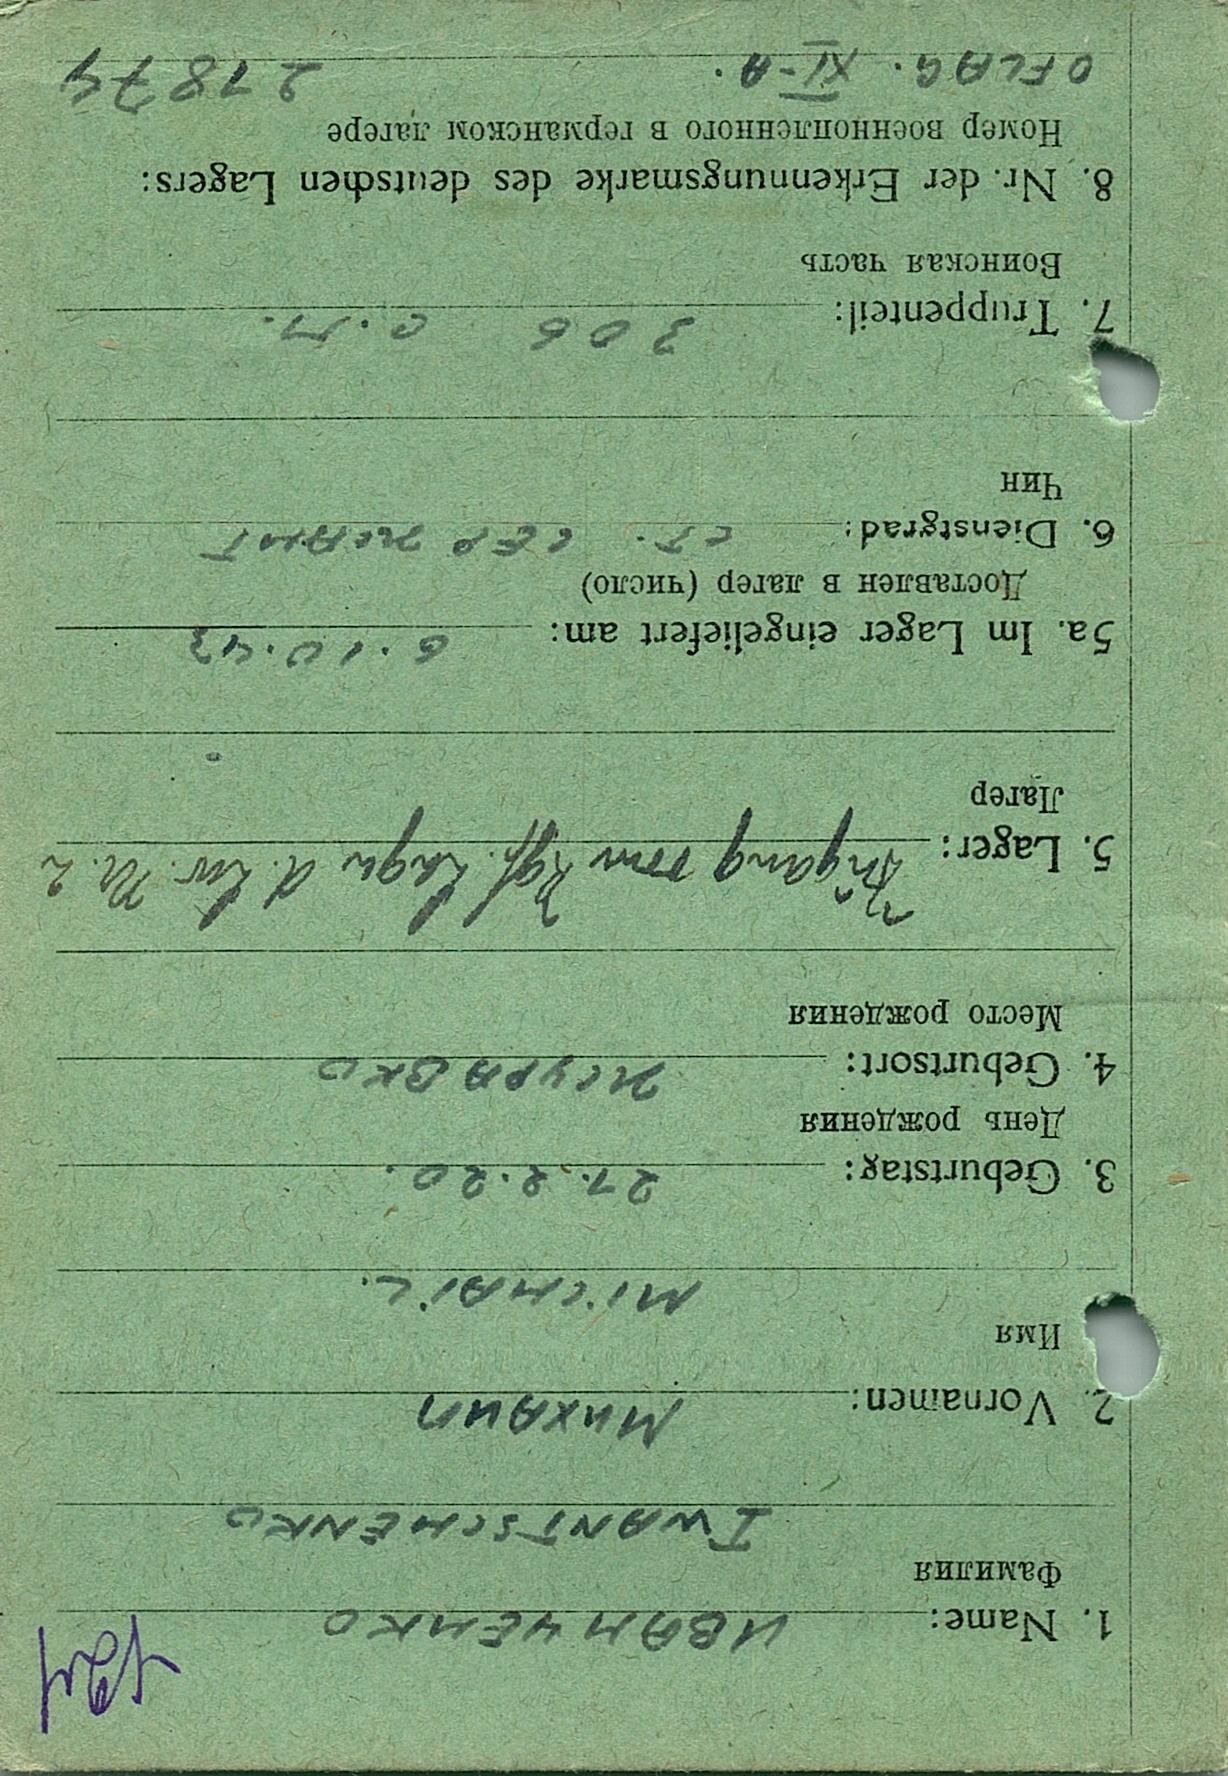 1. Name: ИВАНЧЕНКО
Фамилия
IWANTSCHENKO
2. Vornamen: Михаил
Имя
MICHAIL.
3. Geburtstag: 27.2.20.
День рождения
4. Geburtsort: ЖУРАВКО
Место рождения
5. Lager: Zugang vom Kgf. Lager d. Lw. Nr. 2
Лагер
5a. Im Lager eingeliefert am: 6.10.43
Доставлен в лагер (число)
6. Dienstgrad: СТ. СЕРЖАНТ
Чин
7. Truppenteil: 306
Воинская часть
8. Nr. der Erkennungsmarke des deutschen Lagers:
Номер военнопленного в германском лагере
OFLAG. XI-A. 21874